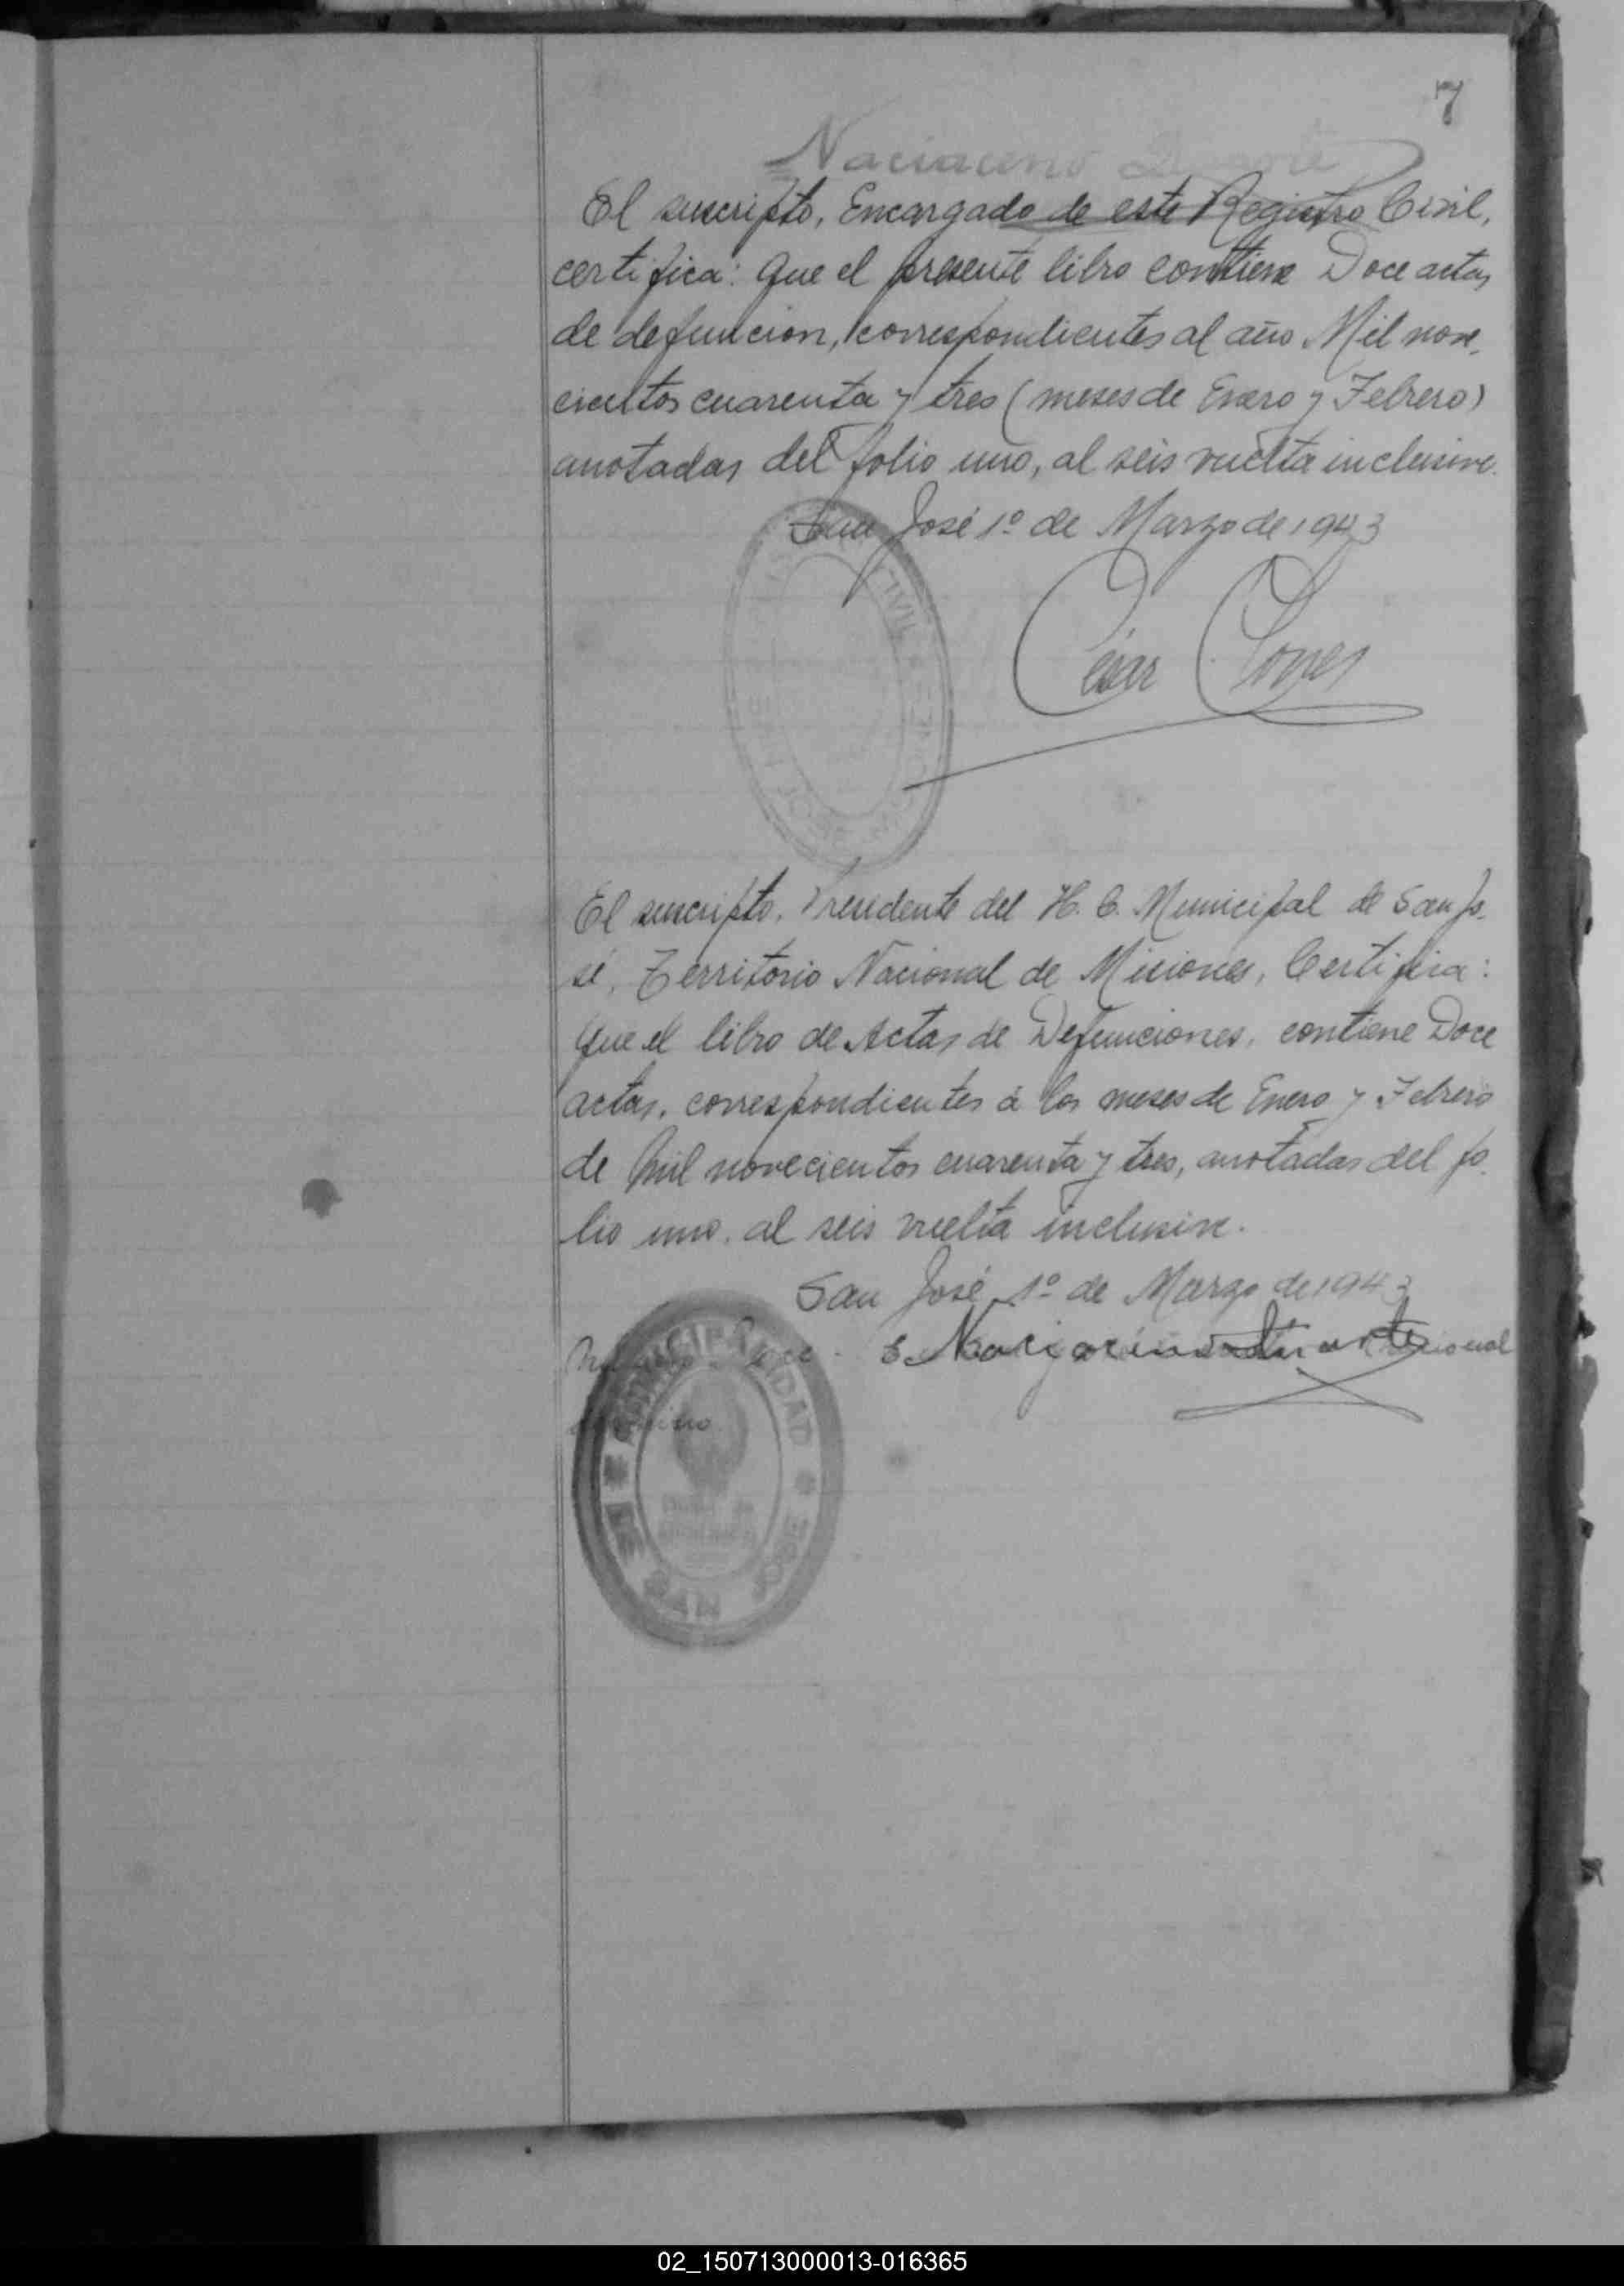 7
El suscripto, Encargado de este Registro Civil,
certifica: Que el presente libro contiene Doce actas
de defuncion, correspondientes al año Mil nove-
cientos cuarenta y tres (meses de Enero y Febrero)
anotadas del folio uno, al seis vuelta inclusive.
San José 1º de Marzo de 1943
CIVIL
SAN JOSE
Cesar
El suscripto, Presidente del H. C. Municipal de San Jo-
sé, Territorio Nacional de Misiones, Certifica:
Que el libro de Actas de Defunciones, contiene Doce
actas, correspondientes á los meses de Enero y Febrero
de Mil novecientos cuarenta y tres, anotadas del fo-
lio uno, al seis vuelta inclusive.
San José 1º de Marzo de 1943
Duarte
MUNICIPALIDAD
DE SAN JOSE
02_150713000013-016365